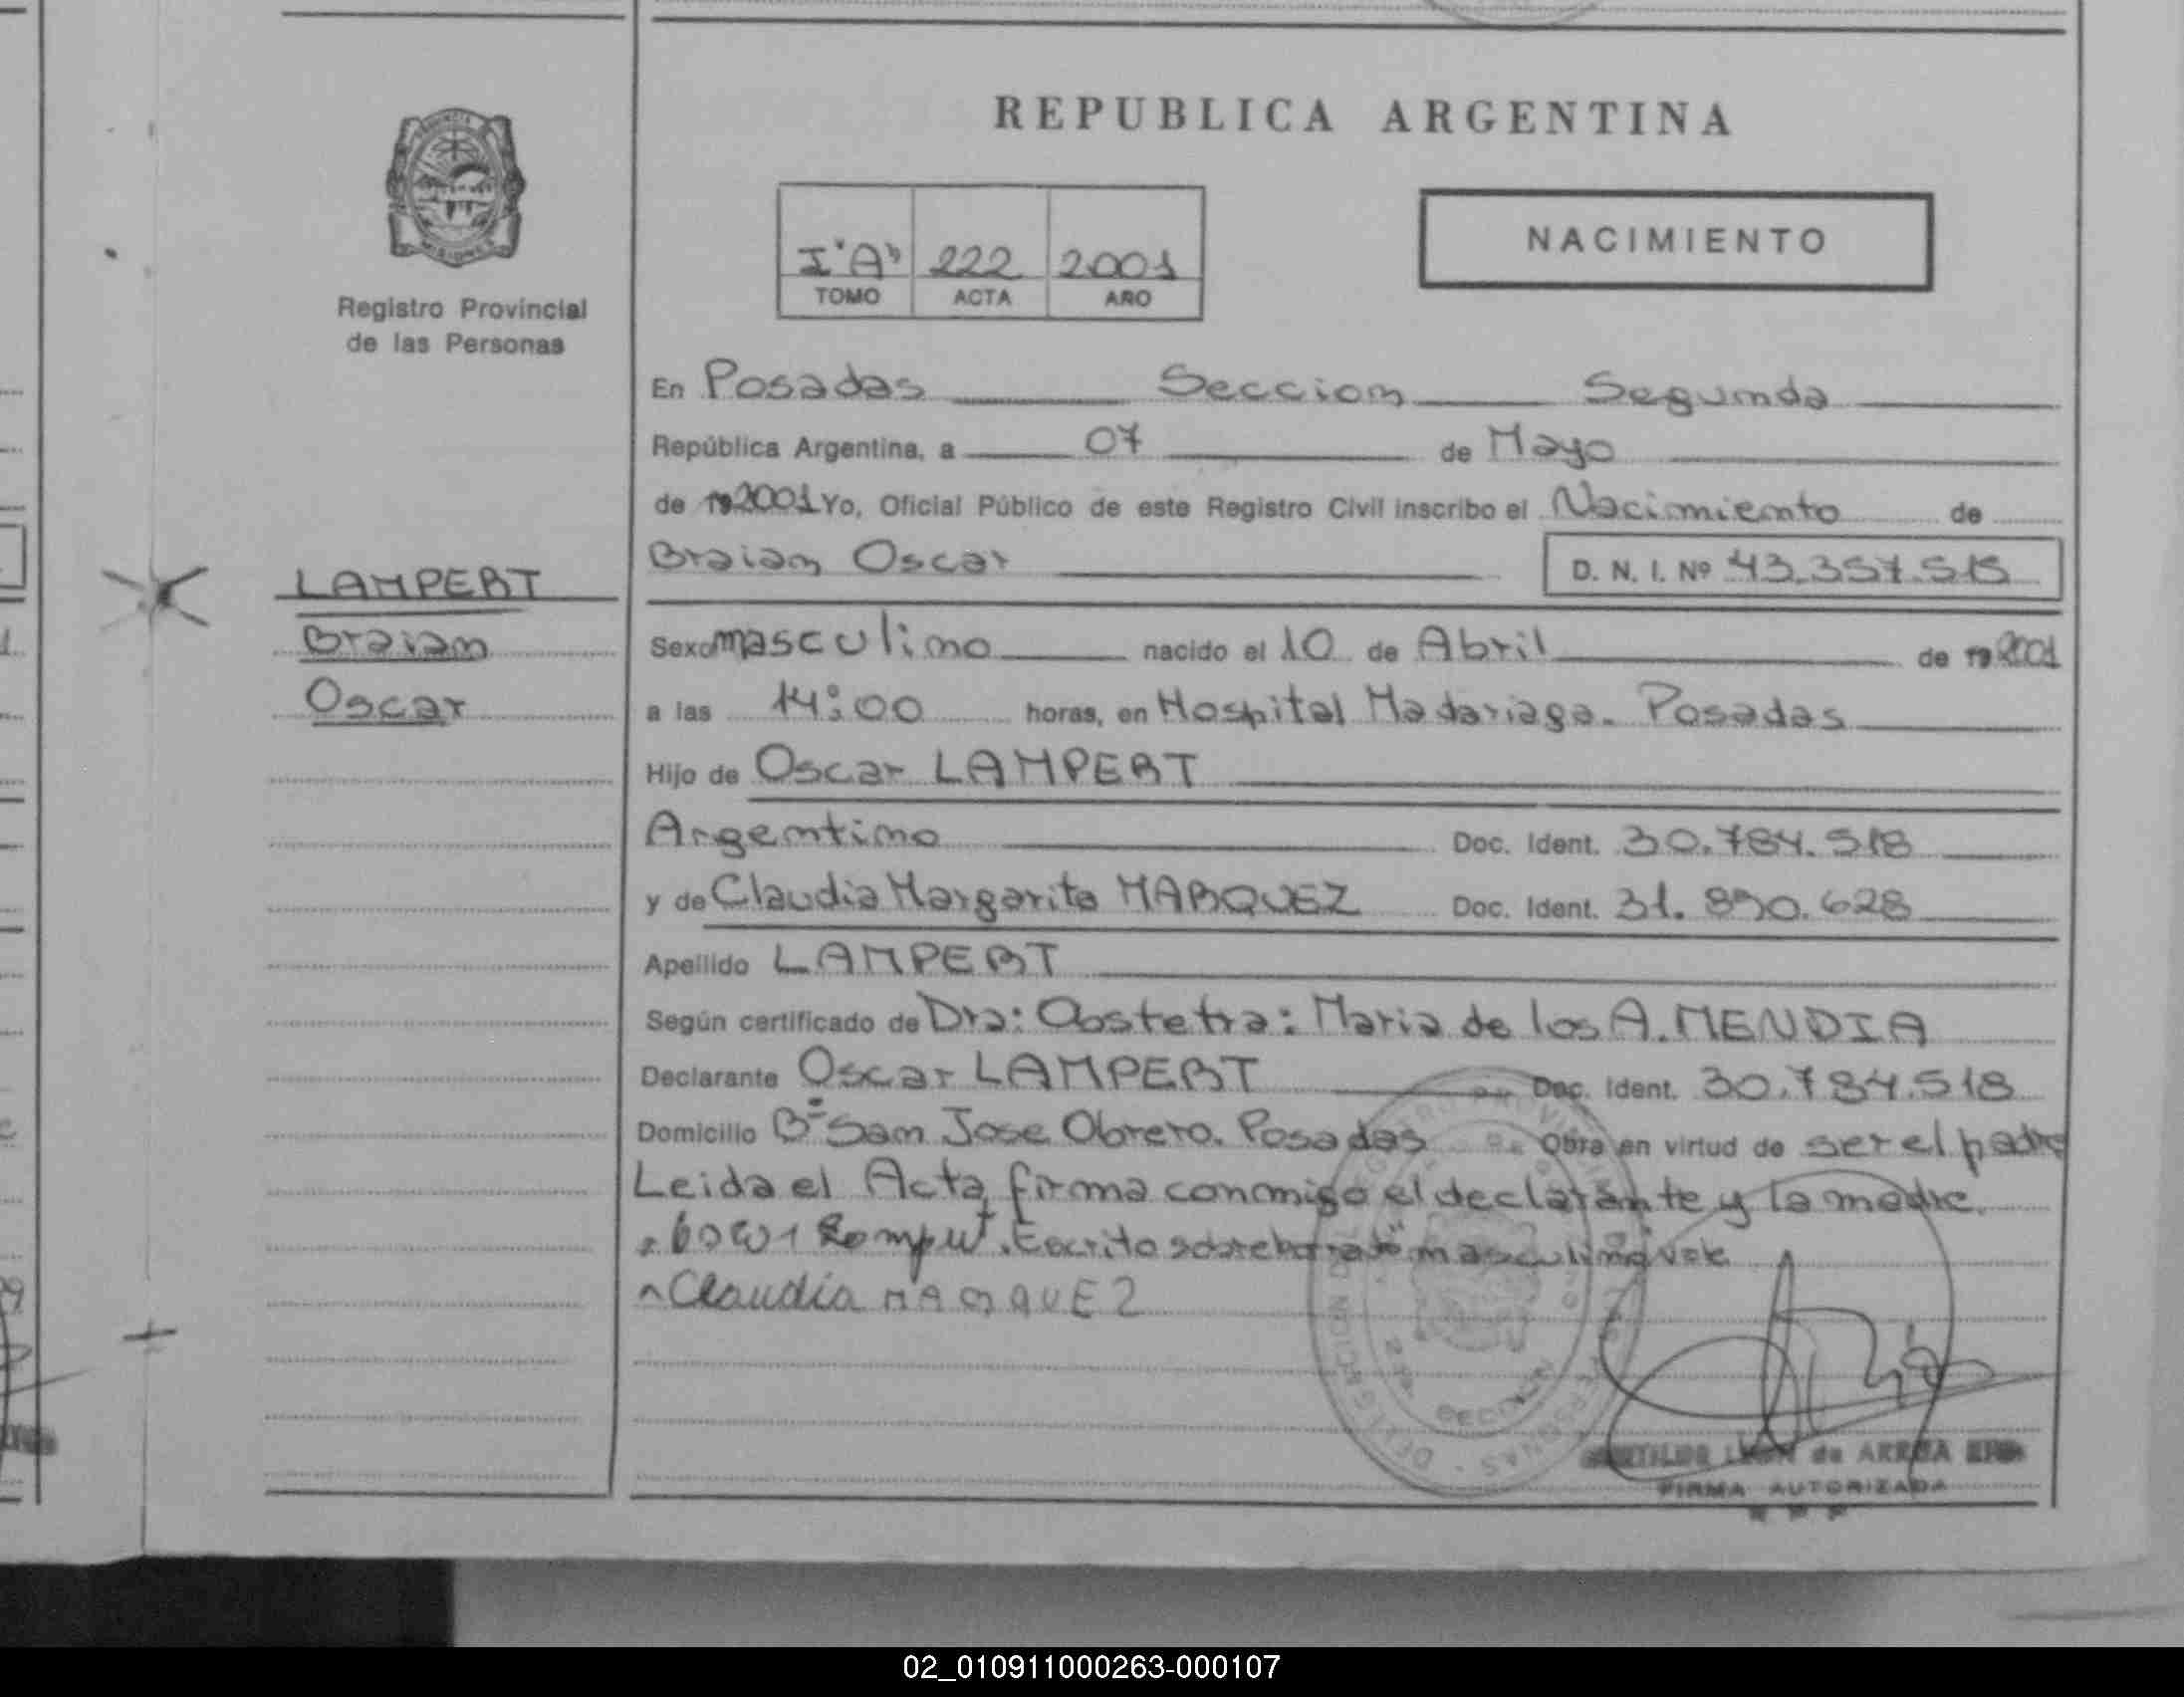 REPUBLICA ARGENTINA
Registro Provincial
de las Personas
I "A" 222 2001
TOMO ACTA AÑO
NACIMIENTO
En Posadas Seccion Segunda
República Argentina, a 07 de Mayo
de 19 2001 Yo, Oficial Público de este Registro Civil inscribo el Nacimiento de
Braian Oscar D. N. I. Nº 43.357.515
LAMPERT
Braian
Oscar
Sexo masculino nacido el 10 de Abril de 19 2001
a las 14:00 horas, en Hospital Madariaga. Posadas
Hijo de Oscar LAMPERT
Argentino Doc. Ident. 30.784.518
y de Claudia Margarita MARQUEZ Doc. Ident. 31.890.628
Apellido LAMPERT
Según certificado de Dra: Obstetra: Maria de los A. MENDIA
Declarante Oscar LAMPERT Doc. Ident. 30.784.518
Domicilio Bº San Jose Obrero. Posadas Obra en virtud de ser el padre
Leida el Acta firma conmigo el declarante y la madre.
Escrito sobreborrado "masculino" vale
Claudia MARQUEZ
2da SECCION
LEON de ARRUA
FIRMA AUTORIZADA
02_010911000263-000107